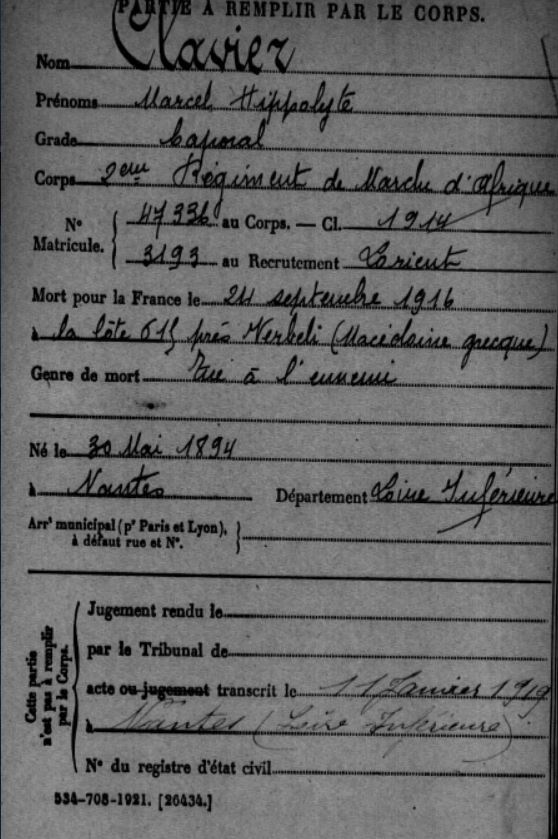 PARTIE À REMPLIR PAR LE CORPS.
Nom Clavier
Prénoms Marcel Hippolyte
Grade Caporal
Corps 2eme Régiment de Marche d'Afrique
N° Matricule. { 47336 au Corps. — Cl. 1914
3193 au Recrutement Lorient
Mort pour la France le 24 septembre 1916
à la côte près Verbeli (Macédoine grecque)
Genre de mort Tué à l'ennemi
Né le 30 Mai 1894
à Nantes Département Loire Inférieure
Arrt municipal (pr Paris et Lyon), à défaut rue et N°. }
Cette partie n'est pas à remplir par le Corps.
Jugement rendu le
par le Tribunal de
acte ou jugement transcrit le 11 Janvier 1919
à Nantes (Loire Inférieure)
N° du registre d'état civil
534-708-1921. [26434.]